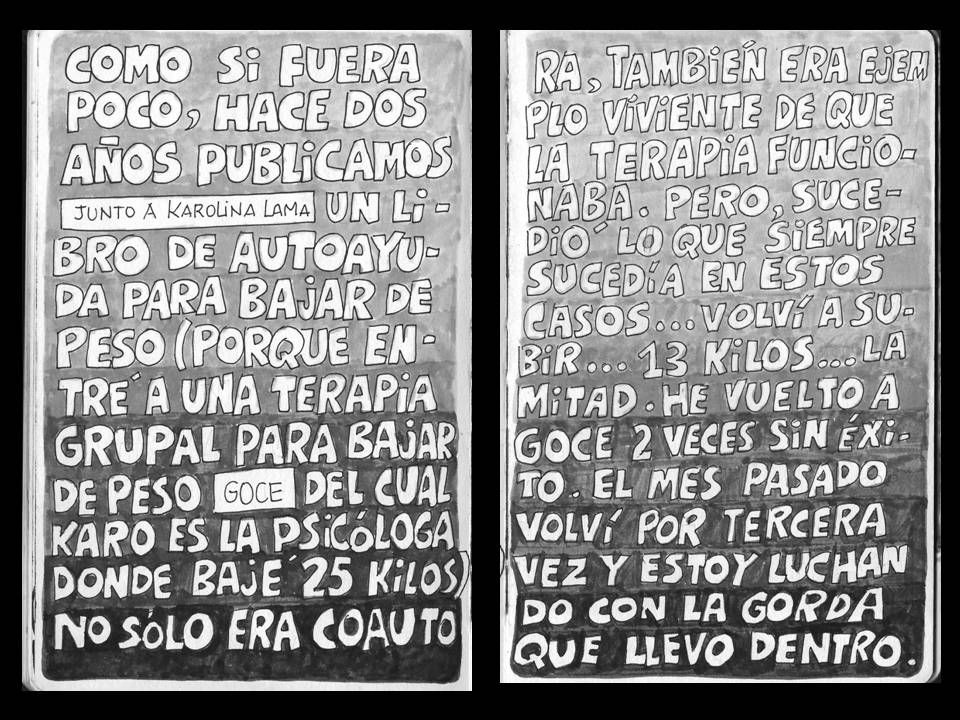 COMO Si FUERA
POCO, HACE DOS
AÑOS PUBLiCAMOS
JUNTO A KAROLiNA LAMA UN Li-
BRO DE AUTOAYU-
DA PARA BAJAR DE
PESO (PORQUE EN-
TRÉ A UNA TERAPiA
GRUPAL PARA BAJAR
DE PESO GOCE DEL CUAL
KARO ES LA PSiCÓLOGA
DONDE BAJÉ 25 KiLOS)
NO SÓLO ERA COAUTO
RA, TAMBiÉN ERA EJEM
PLO ViViENTE DE QUE
LA TERAPiA FUNCiO-
NABA. PERO, SUCE-
DiÓ LO QUE SiEMPRE
SUCEDíA EN ESTOS
CASOS...VOLVí A SU-
BiR... 13 KiLOS...LA
MiTAD. HE VUELTO A
GOCE 2 VECES SiN ÉXi-
TO. EL MES PASADO
VOLVí POR TERCERA
VEZ Y ESTOY LUCHAN
DO CON LA GORDA
QUE LLEVO DENTRO.